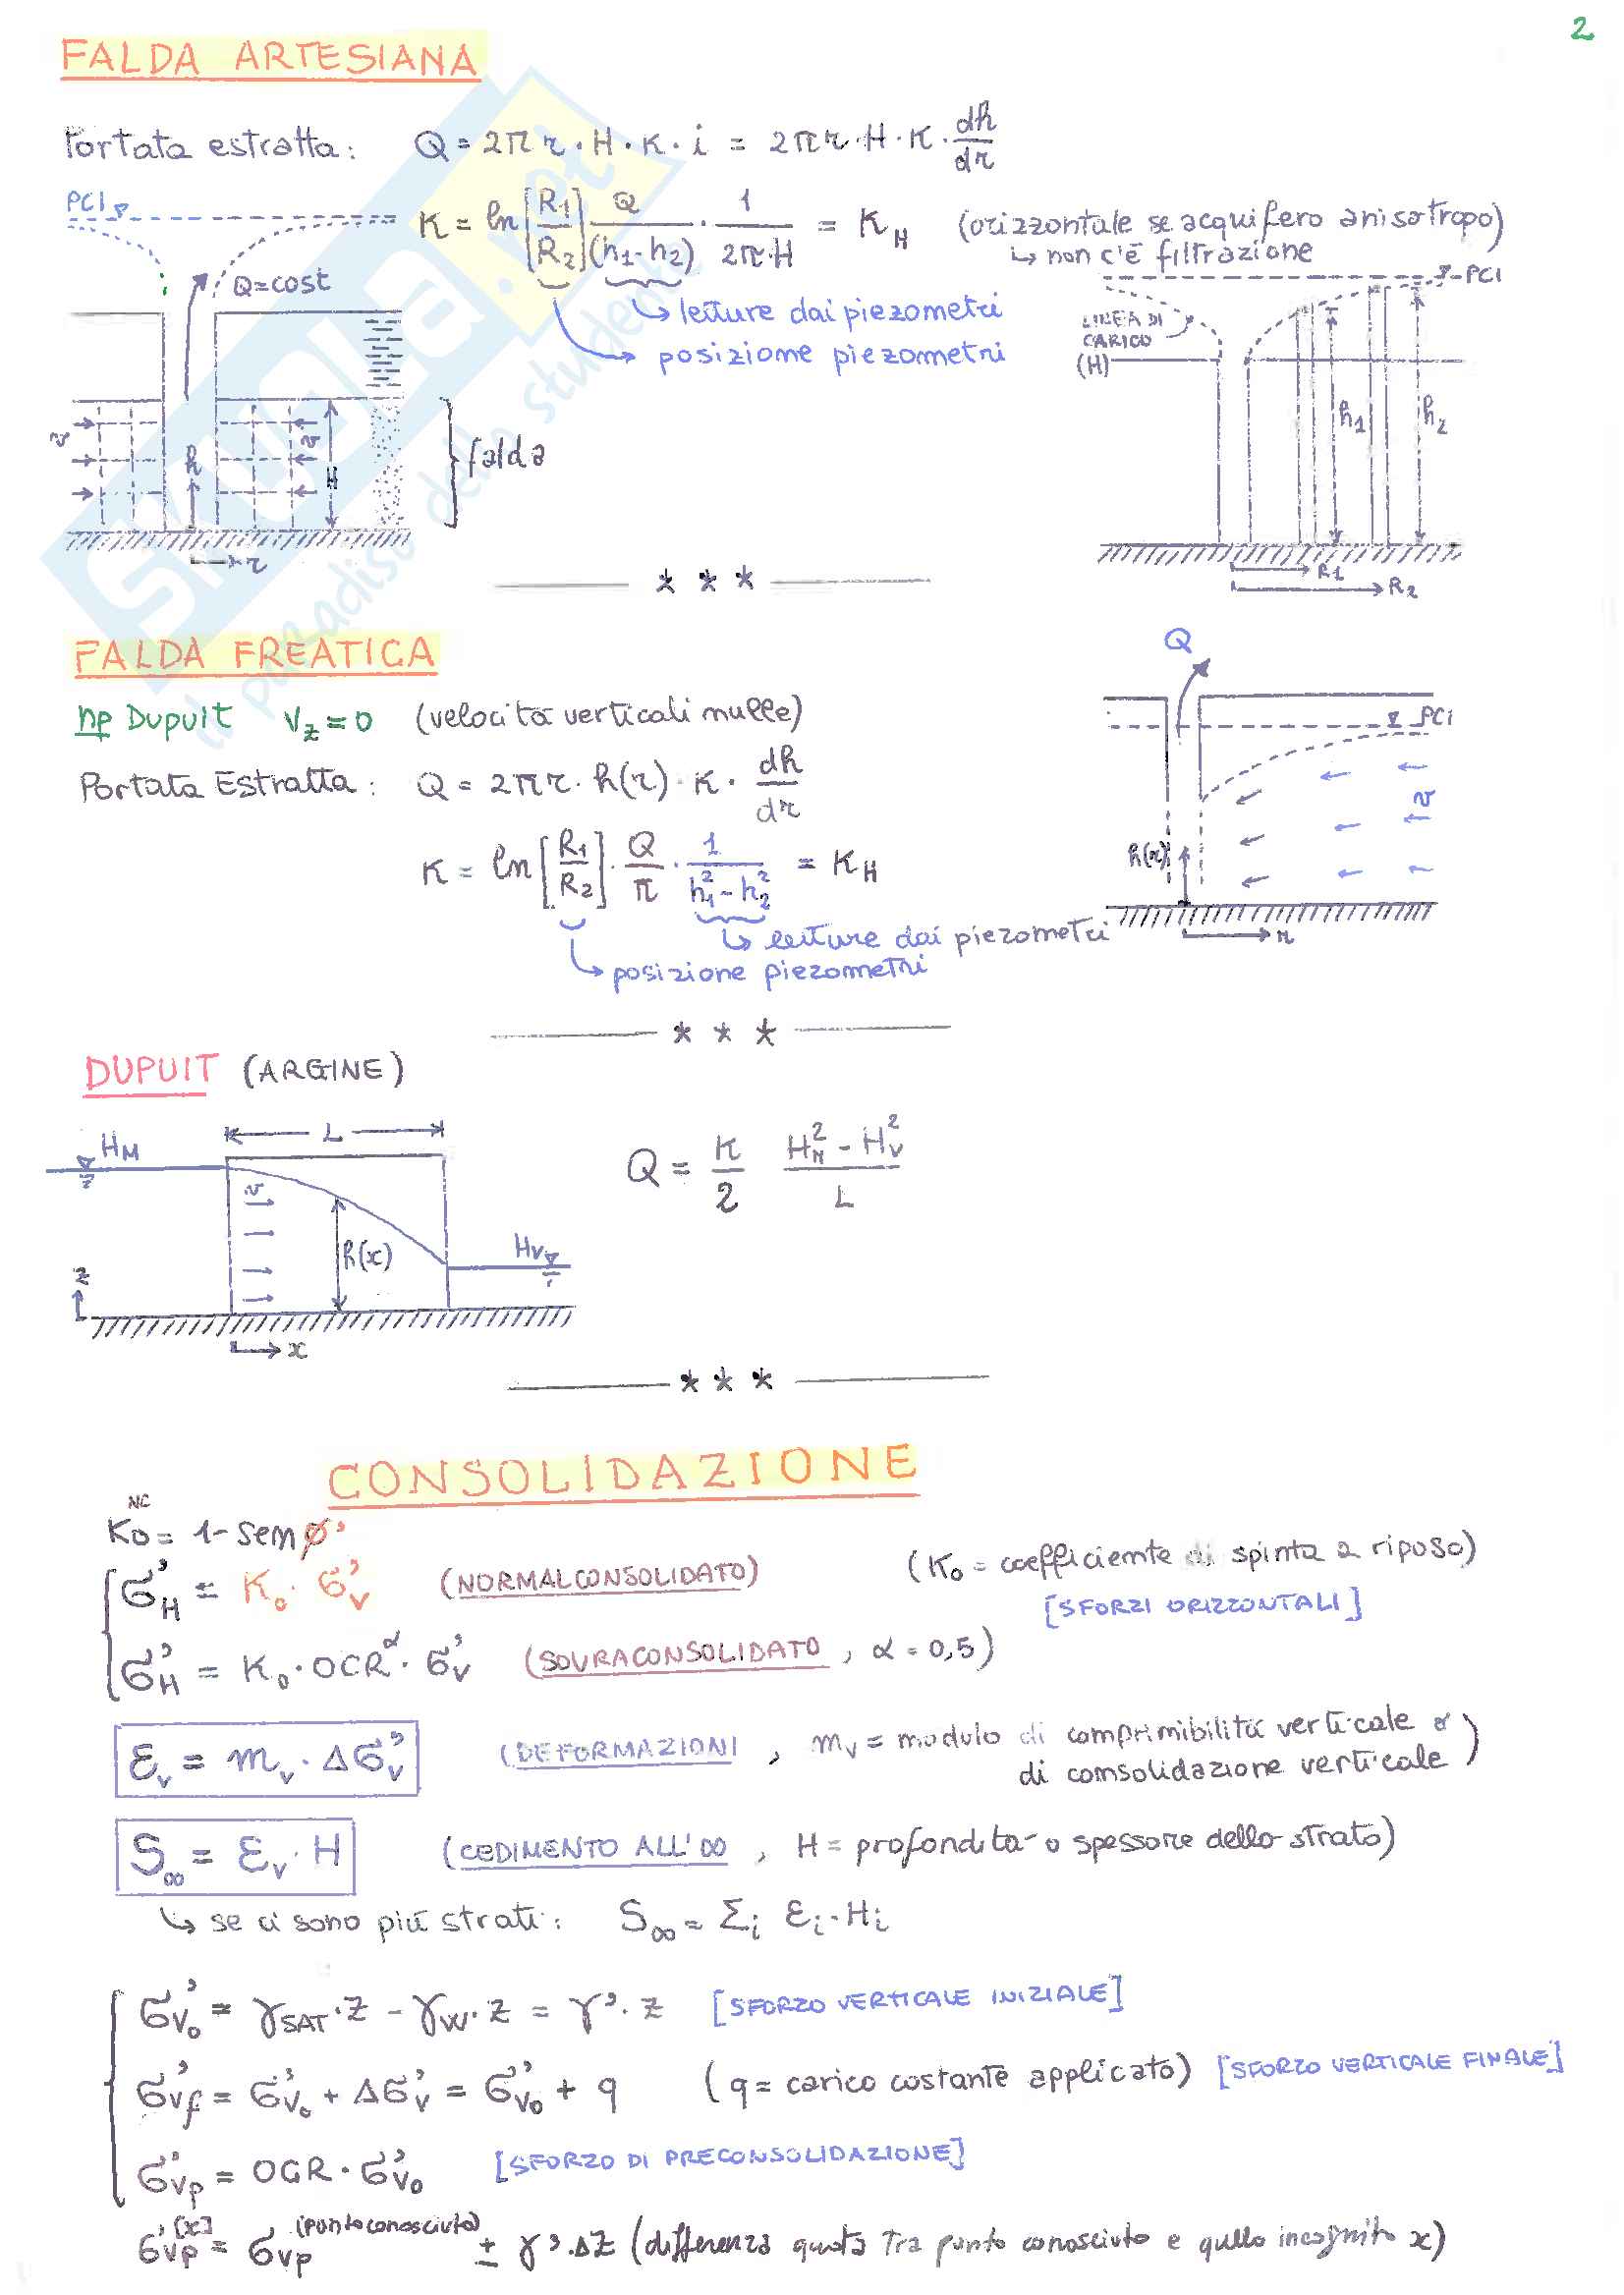 2
FALDA ARTESIANA
Portata estratta: Q = 2πr · H · K · i = 2πr · H · K · dh/dr
PCI
K = ln[R1/R2] Q/(h1-h2) · 1/2π·H = KH (orizzontale se acquifero anisotropo)
↳ non c'è filtrazione
Q=cost
→ letture dai piezometri
→ posizione piezometri
PCI
LINEA DI
CARICO
(H)
h1
h2
v
h
v
H
falda
r
R1
R2
* * *
SKUOLA.net
il paradiso dello studente
FALDA FREATICA
hp Dupuit Vz=0 (velocità verticali nulle)
Portata Estratta: Q = 2πr · h(r) · K · dh/dr
K = ln[R1/R2] · Q/π · 1/h1²-h2² = KH
↳ letture dai piezometri
→ posizione piezometri
Q
PCi
v
h(x)
r
* * *
DUPUIT (ARGINE)
HM
L
Q = K/2 HM²-HV²/L
v
h(x)
HV
z
x
* * *
CONSOLIDAZIONE
K0 NC = 1-sen φ'
σ'H = K0 · σ'v (NORMALCONSOLIDATO) (K0 = coefficiente di spinta a riposo)
[SFORZI ORIZZONTALI]
σ'H = K0 · OCR^α · σ'v (SOVRACONSOLIDATO, α = 0,5)
εv = mv · Δσ'v (DEFORMAZIONI, mv = modulo di comprimibilità verticale o
di consolidazione verticale)
S∞ = εv · H (CEDIMENTO ALL'∞, H = profondità o spessore dello strato)
↳ se ci sono più strati: S∞ = Σi εi · Hi
σ'v0 = γSAT · z - γW · z = γ' · z [SFORZO VERTICALE INIZIALE]
σ'vf = σ'v0 + Δσ'v = σ'v0 + q (q = carico costante applicato) [SFORZO VERTICALE FINALE]
σ'vp = OCR · σ'v0 [SFORZO DI PRECONSOLIDAZIONE]
σ'vp [x] = σ'vp (punto conosciuto) ± γ' · Δz (differenza quota tra punto conosciuto e quello incognito x)